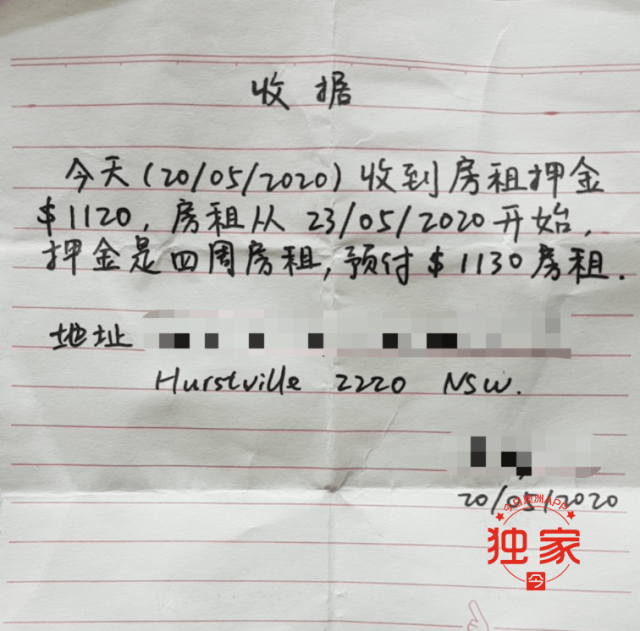 收据
今天(20/05/2020)收到房租押金
$1120,房租从23/05/2020开始,
押金是四周房租,预付$1130房租.
地址
Hurstville 2220 NSW.
20/05/2020
今日澳洲APP
独家
今